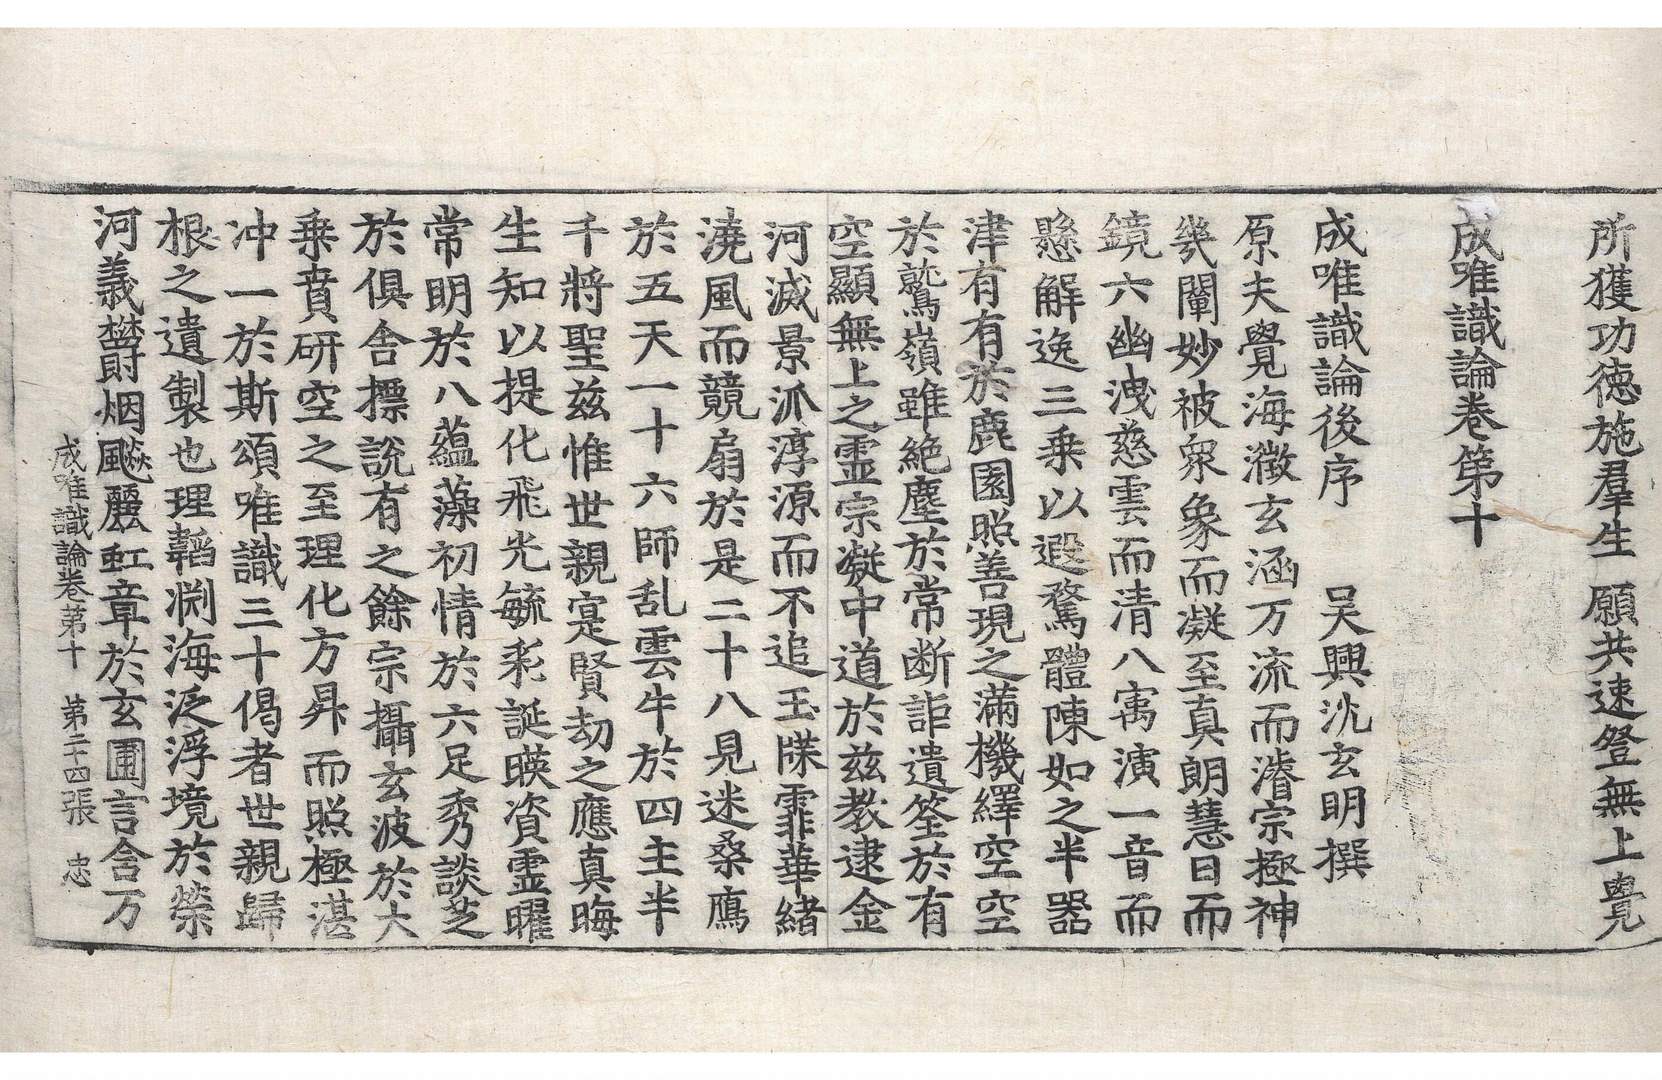 所獲功徳施羣生　願共速登無上覺
成唯識論卷第十
成唯識論後序　吴興沈玄明撰
原夫覺海澂玄涵万流而濬宗極神
幾闡妙被衆象而凝至真朗慧日而
鏡六幽洩慈雲而清八㝢演一音而
懸解逸三乗以遐騖體陳如之半器
津有有於鹿園照善現之滿機繹空空
於鷲嶺雖絶塵於常断詎遺筌於有
空顯無上之靈宗凝中道於兹教逮金
河滅景派淳源而不追玉牒霏華緒
澆風而競扇於是二十八見迷桑鴈
於五天一十六師乱雲牛於四主半
千將聖兹惟世親寔賢劫之應真晦
生知以提化飛光毓彩誕暎資靈曜
常明於八蘊藻初情於六足秀談芝
於俱舍摽說有之餘宗攝玄波於大
乗賁研空之至理化方昇而照極湛
冲一於斯頌唯識三十偈者世親歸
根之遺製也理韜渊海泛浮境於榮
河義欝烟飈麗虹章於玄圃言含万
成唯識論卷第十　第二十四張　忠